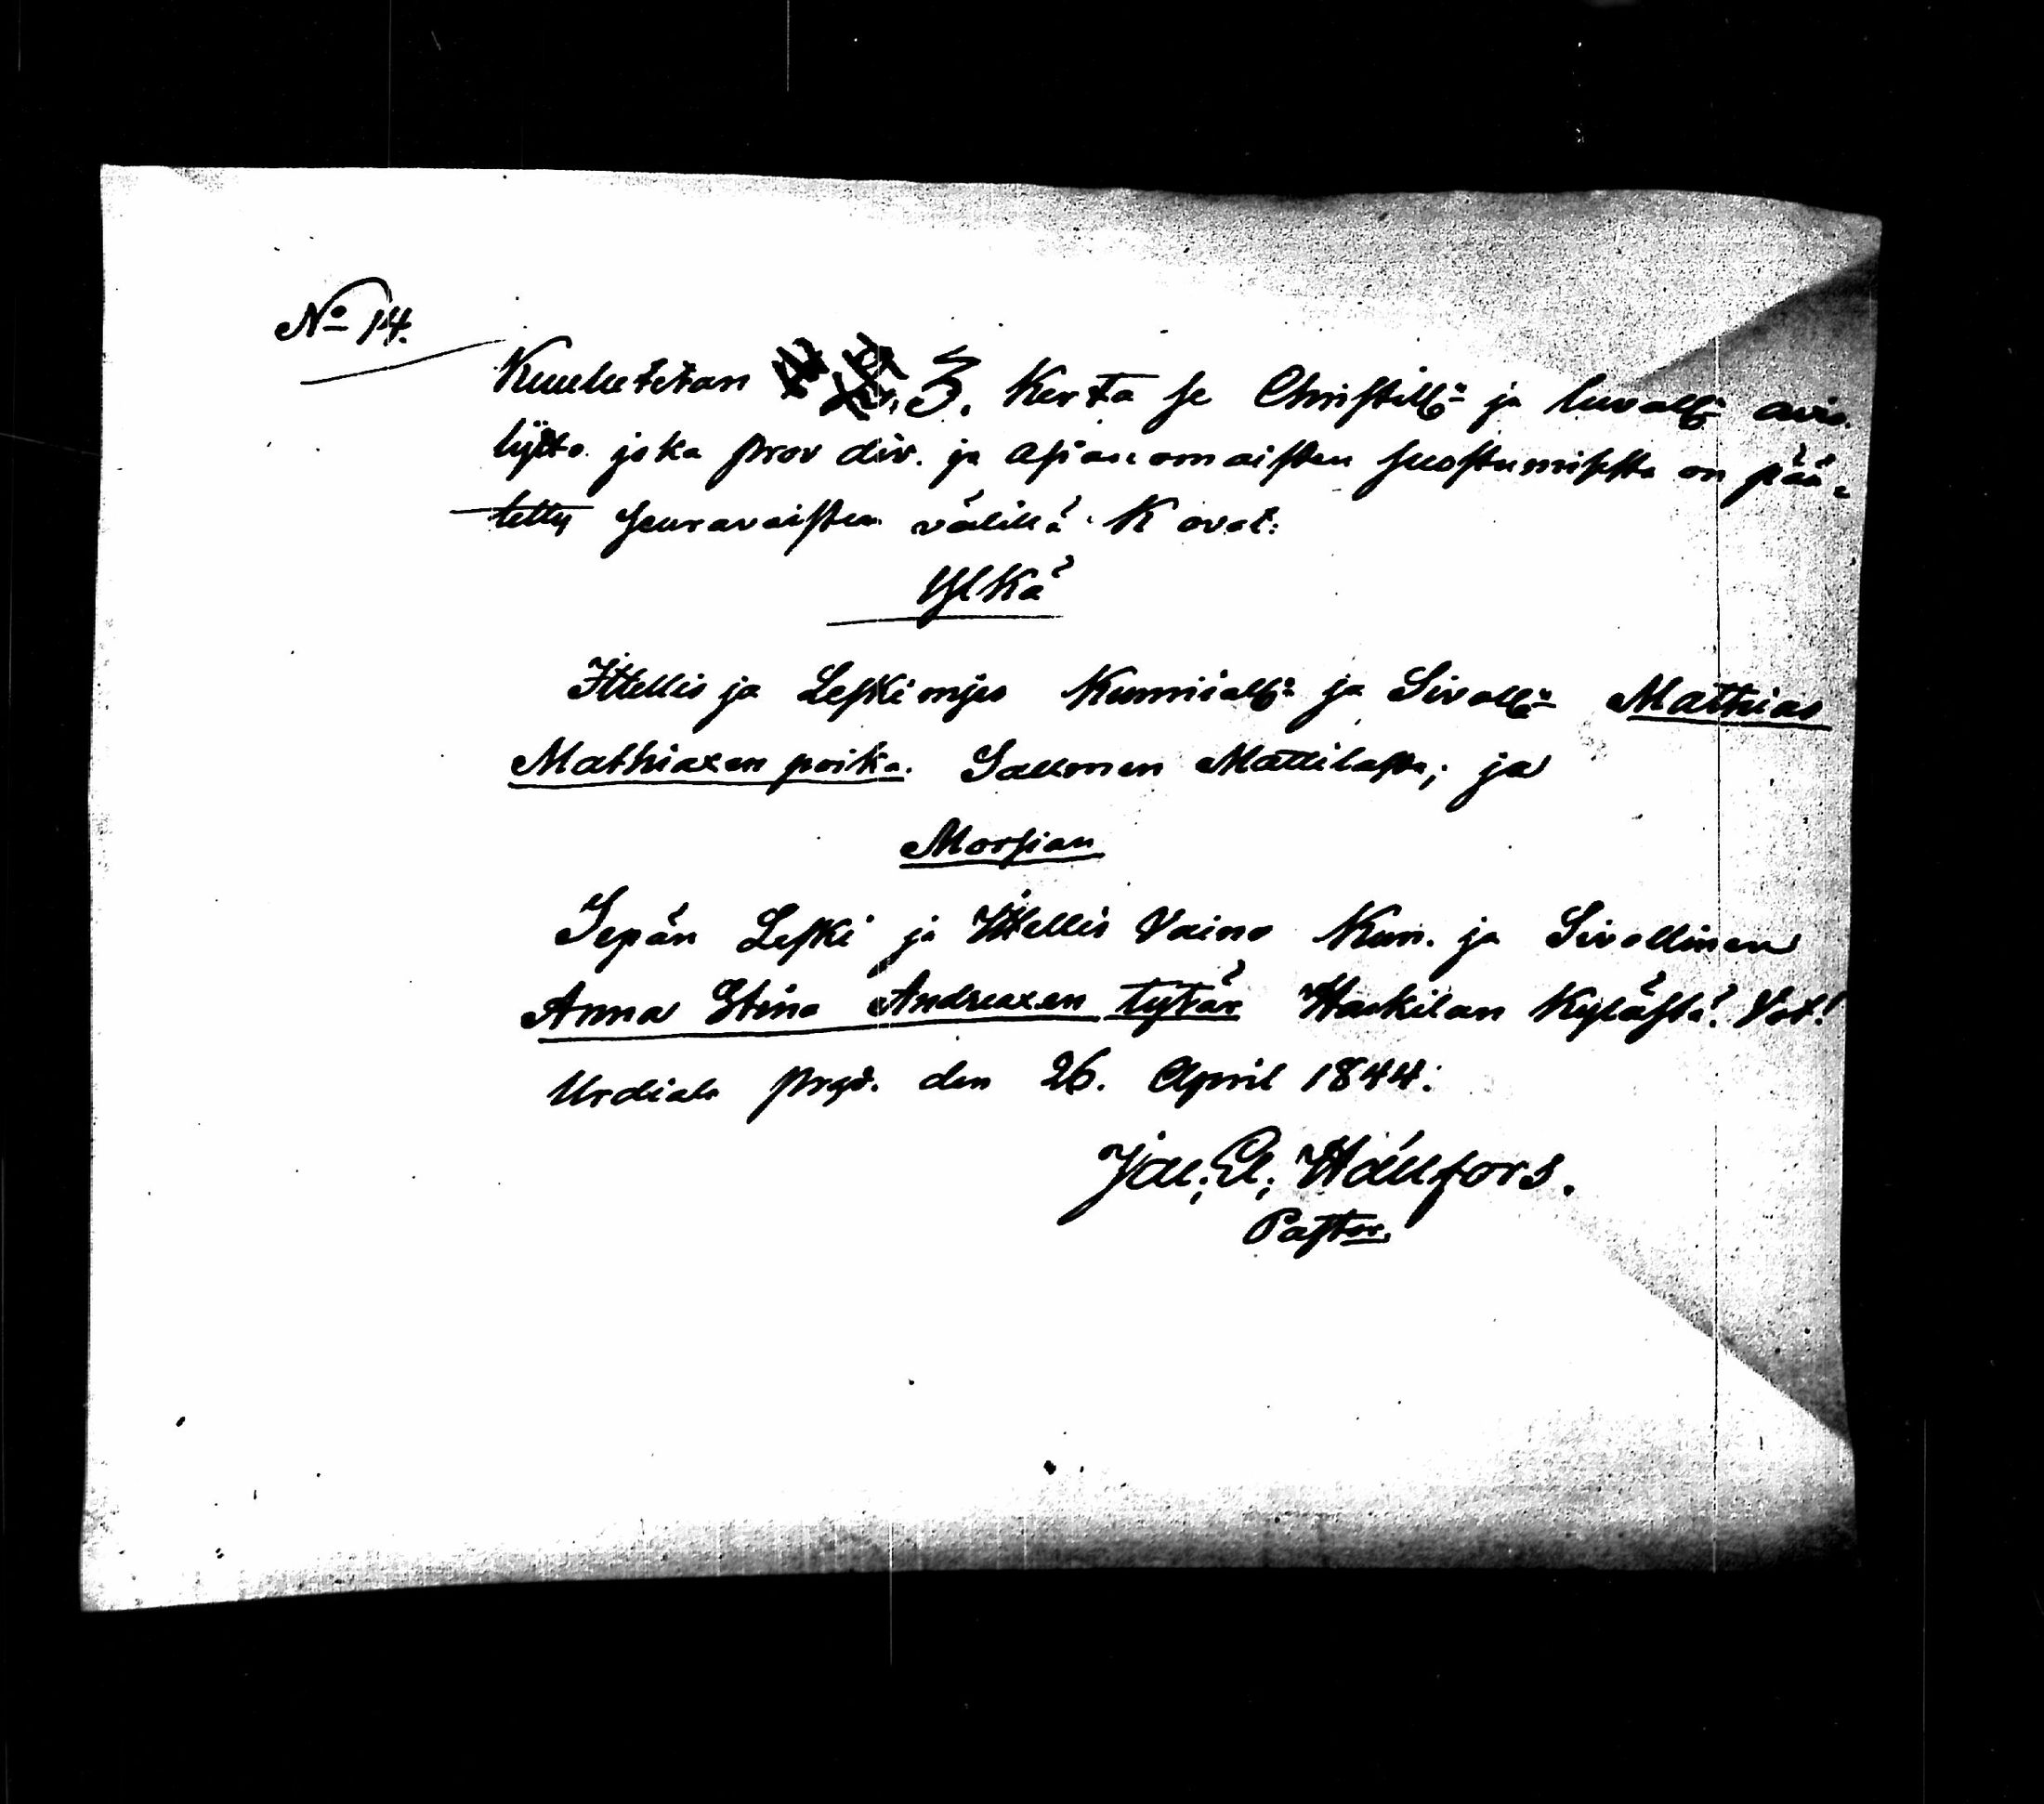 No 14.
Kuulutetan 3. Kerta se Christill:n ja luvall:n avio
lijtto joka prov div. ja asianomaisten suostumisesta on pää-
tetty seuravaisten välillä. K ovat:
Ylkä
Ittellis ja Leskimjes Kunniall:n ja Sivoll:n Mathias
Mathiaxen poika. Salonen Mattilasta; ja
Morsian
Sepän Leski ja Ittellis Vaimo Kun. ja Sivollinen
Anna Stina Andreaxen tytär Haukilan Kylästä. Vot!
Urdiala prgd. den 26. April 1844.
Hällfors.
Pastor.